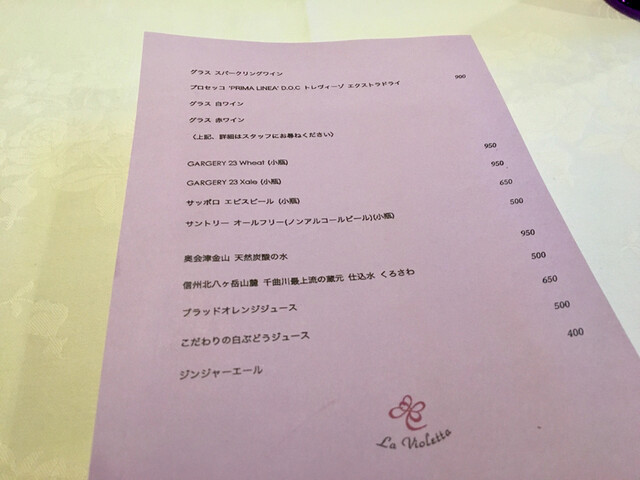 グラス スパークリングワイン
プロセッコ 'PRIMA LINEA' D.O.C トレヴィーゾ エクストラドライ 900
グラス 白ワイン
グラス 赤ワイン
（上記、詳細はスタッフにお尋ねください）
GARGERY 23 Wheat (小瓶) 950
GARGERY 23 Xale (小瓶) 950
サッポロ エビスビール (小瓶) 650
サントリー オールフリー(ノンアルコールビール)(小瓶) 500
奥会津金山 天然炭酸の水 950
信州北八ヶ岳山麓 千曲川最上流の蔵元 仕込水 くろさわ 500
ブラッドオレンジジュース 650
こだわりの白ぶどうジュース 500
ジンジャーエール 400
La Violetta